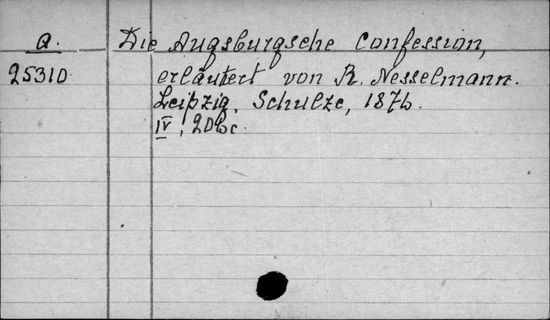 Q. Die Augsburgsche Confession,
25310 erläutert von R. Nesselmann.
Leipzig, Schulze, 1876.
IV, 206c.